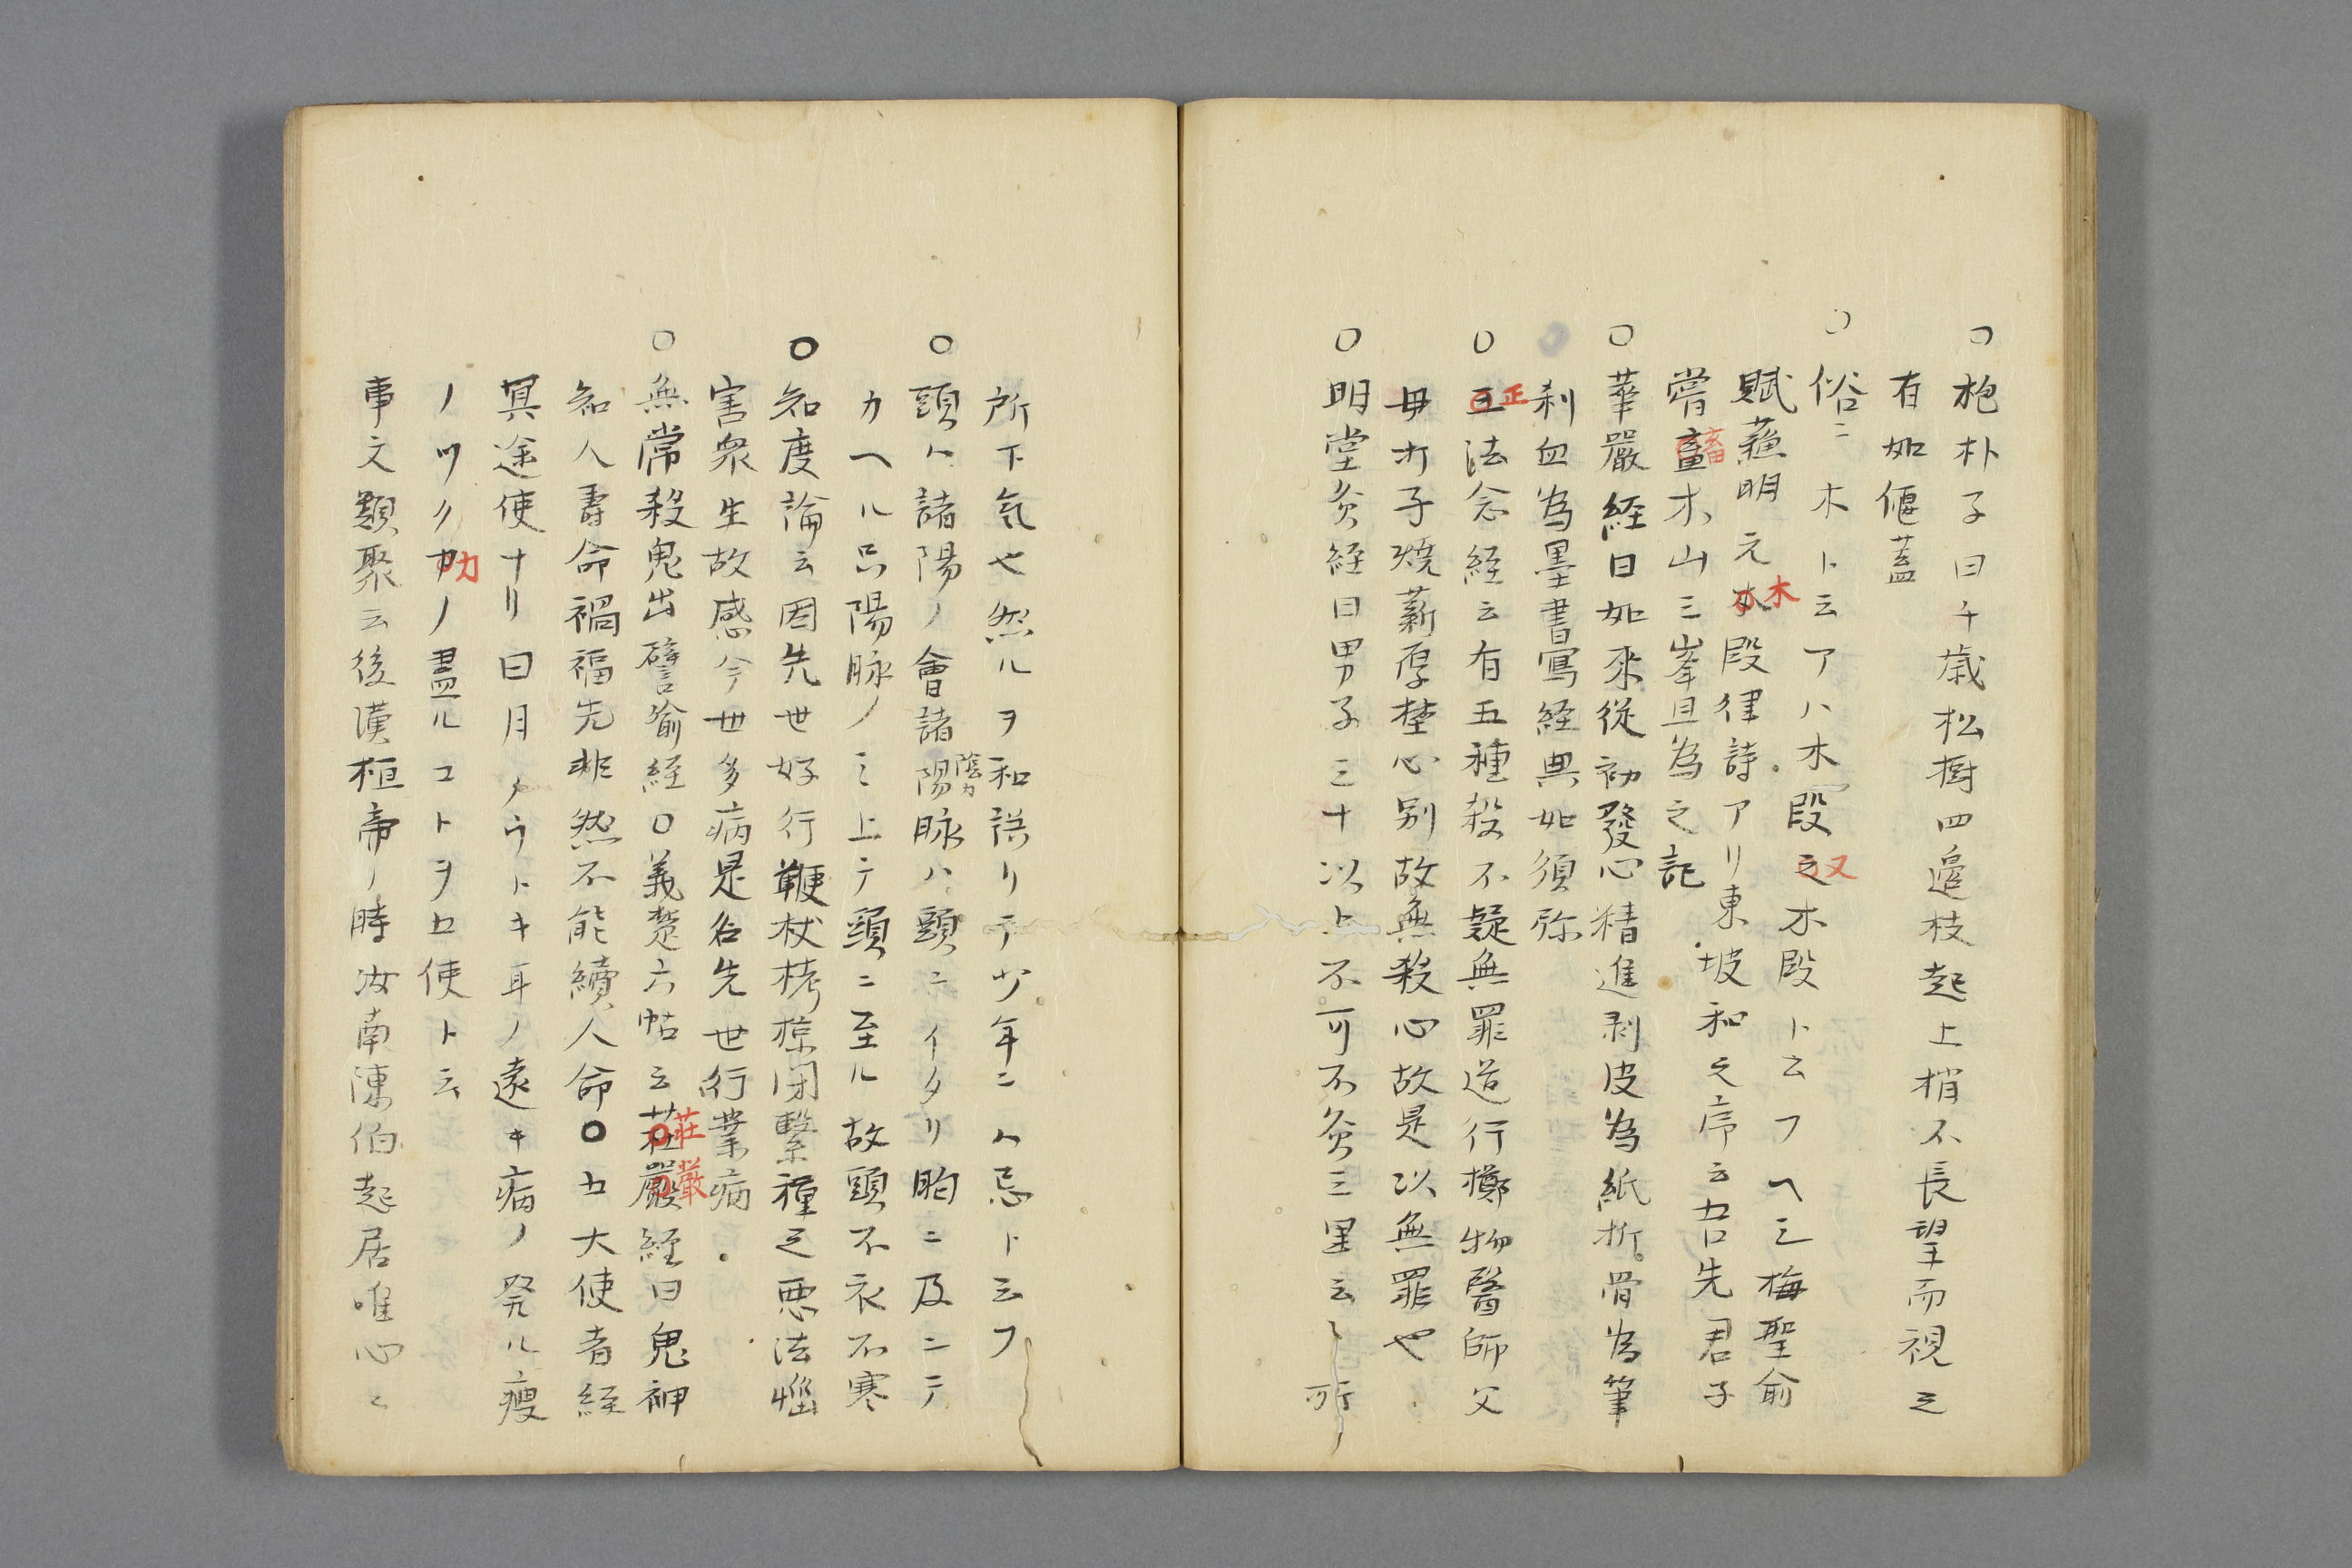 ○抱朴子曰千歳松樹四邊枝起上梢不長望而視之
有如偃蓋
○俗ニ木トニ云アハ木叚之又木叚ト云フヘシ梅聖俞
賦蘓明元木叚律詩アリ東坡和之序云吉先君子
甞畜畜木山三峯且為之記
○華嚴経曰如来従初發心精進剥皮為紙折骨為筆
刹血為墨書寫経典如須弥
○王正法念経云有五種殺不疑無罪道行擲物醫師父
母打子焼薪厚埜心别故無殺心故是以無罪也
○明堂灸経曰男子三十以上不可不灸三里云〻所
所下気也然ルヲ和誤リテ少年ニハ忌ト云フ
○頭ハ諸陽ノ會諸陽陰カ脉ハ頸ニイタリ胸ニ及ニテ
カヘル只陽脉ノミ上テ頭ニ至ル故頭不衣不寒
○知度論云因先世好行鞭杖栲椋閉繋種〻悪法惱
害衆生故感今世多病是名先世行業病
○無常殺鬼出譬喻経○義楚六帖云荘嚴莊嚴経曰鬼神
知人壽命禍福先非然不能續人命○五大使者経
冥途使ナリ曰月メウトキ耳ノ遠キ病ノ発ル痩
ノツクカ力ノ盡ルコトヲ五使ト云
事文類聚云後漢桓帝ノ時汝南陳伯起居唯心〻